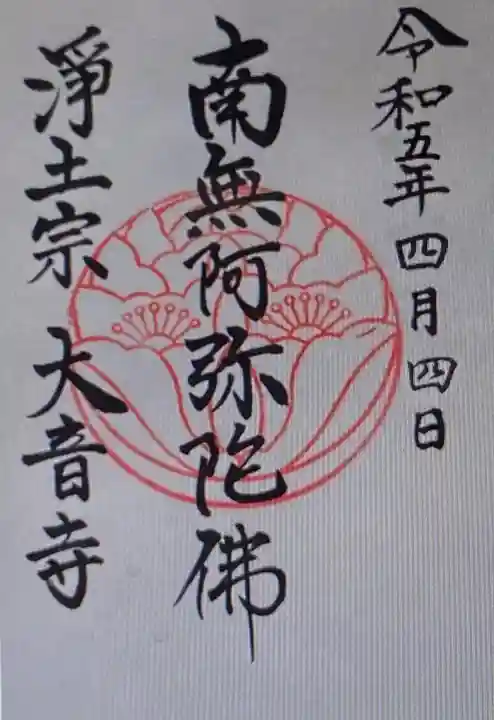 令和五年四月四日
南無阿弥陀佛
淨土宗 大音寺